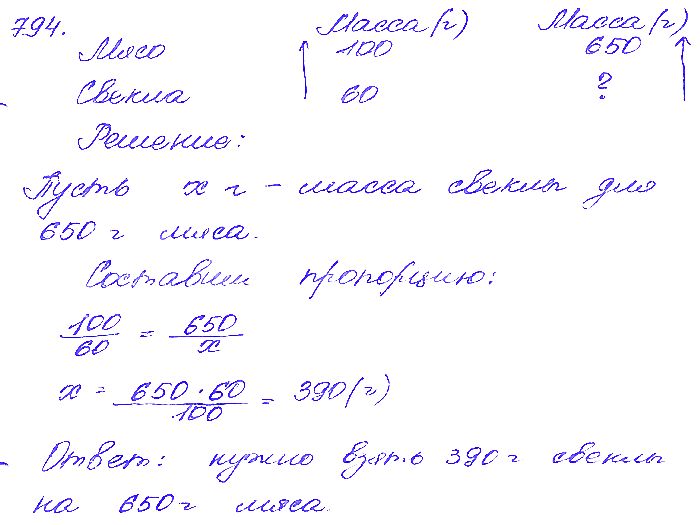 794. Масса (г) Масса (г)
Мясо 100 650
Свекла 60 ?
Решение:
Пусть x г - масса свеклы для
650 г мяса.
Составим пропорцию:
100/60 = 650/x
x = 650·60/100 = 390 (г)
Ответ: нужно взять 390 г свеклы
на 650 г мяса.